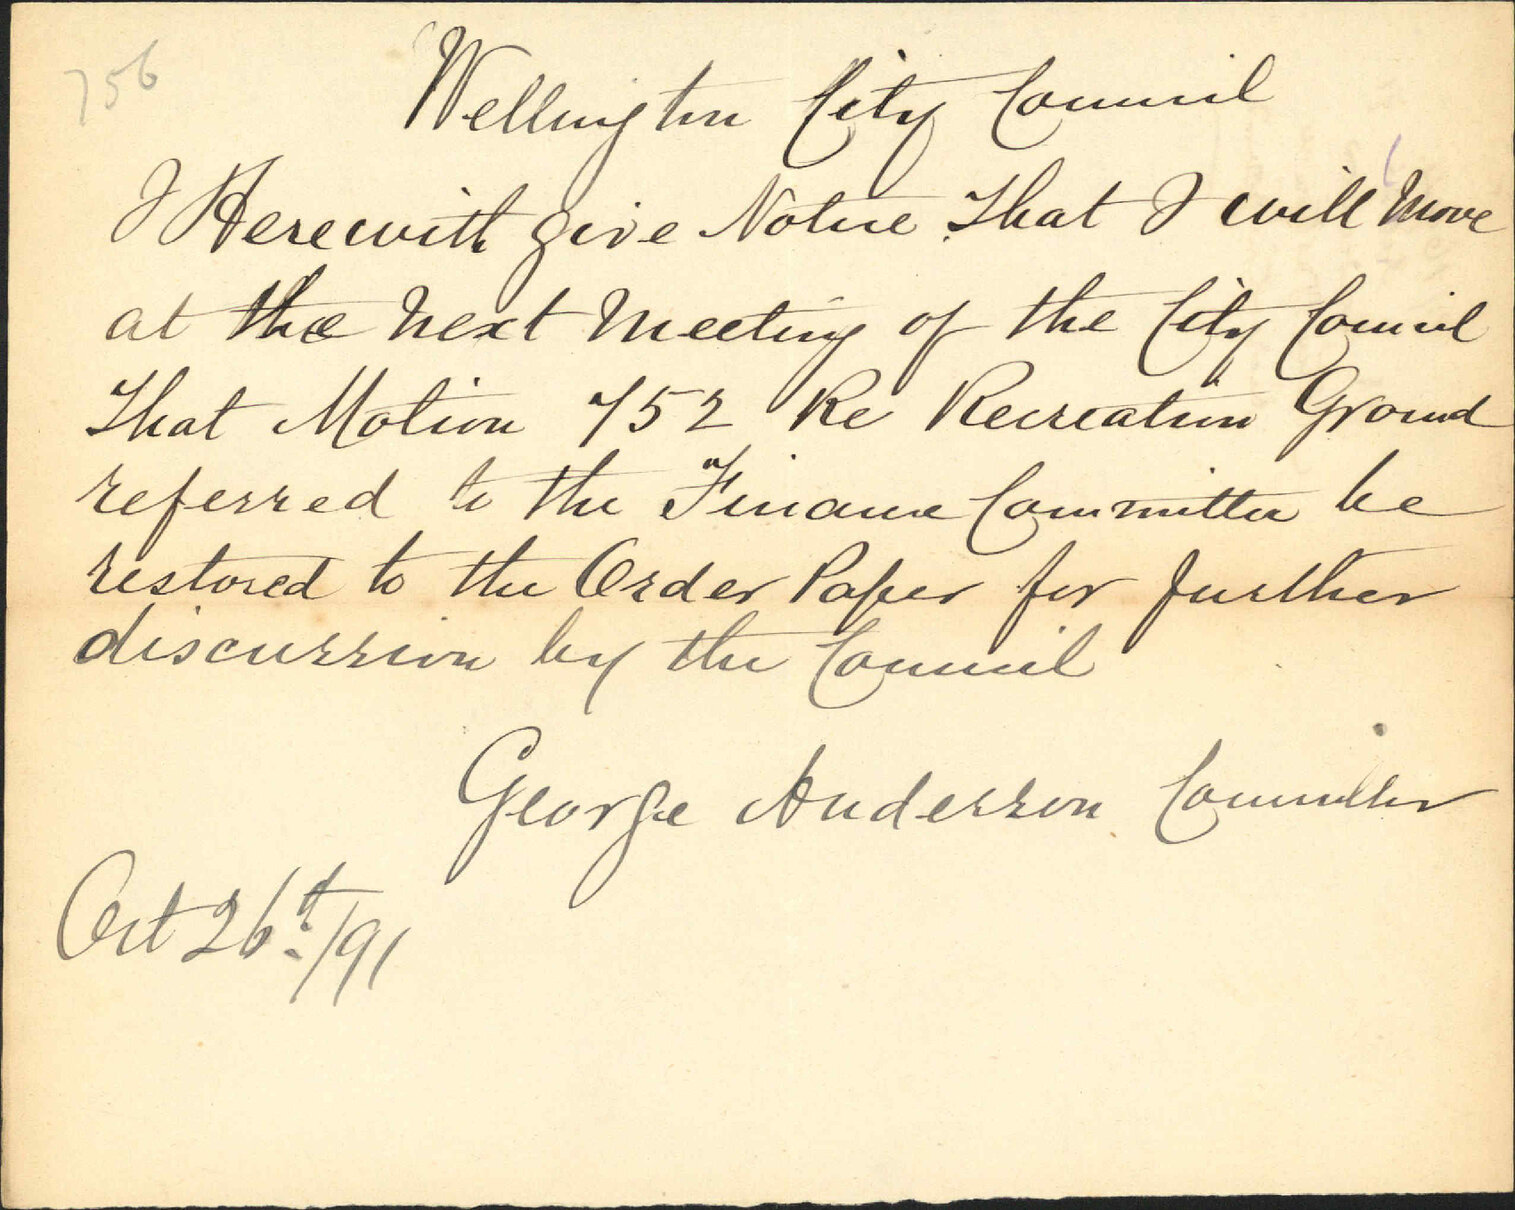 756
Wellington City Council
I Herewith give Notice That I will Move
at the next Meeting of the City Council
That Motion 752 Re Recreation Ground
referred to the Finance Committee be
restored to the Order Paper for further
discussion by the Council
George Anderson Councillor
Oct 26th/91